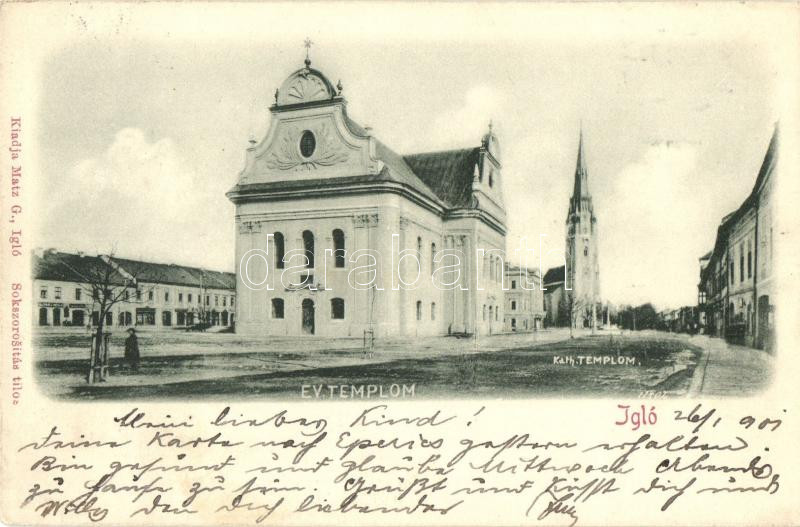 Kiadja Matz G., Igló Sokszorosítás tilos
darabanth.com
EV. TEMPLOM
Kath. TEMPLOM.
Igló 26/1 901
Mein liebes Kind!
Deine Karte nach Eperies gestern erhalten.
Bin gesund und glaube Mittwoch Abends
zu Hause zu sein. Grüßt und Küßt dich und
Willy den dich liebender